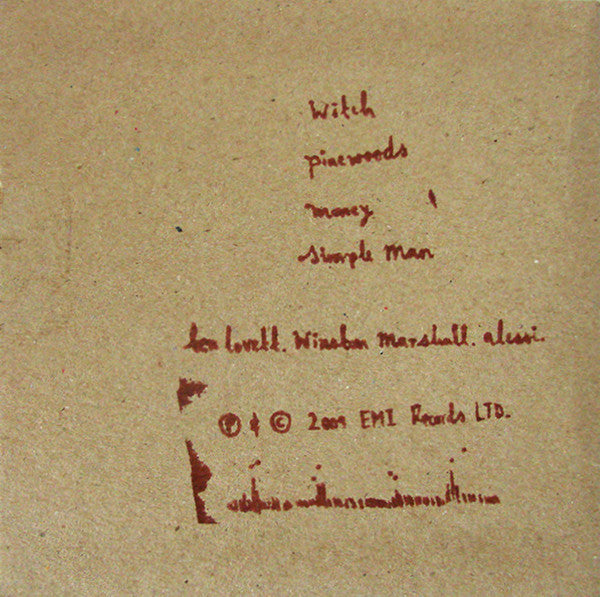 Witch
pinewoods
money
Simple Man
ben lovett. Winston Marshall. alessi.
Ⓟ & © 2009 EMI Records LTD.